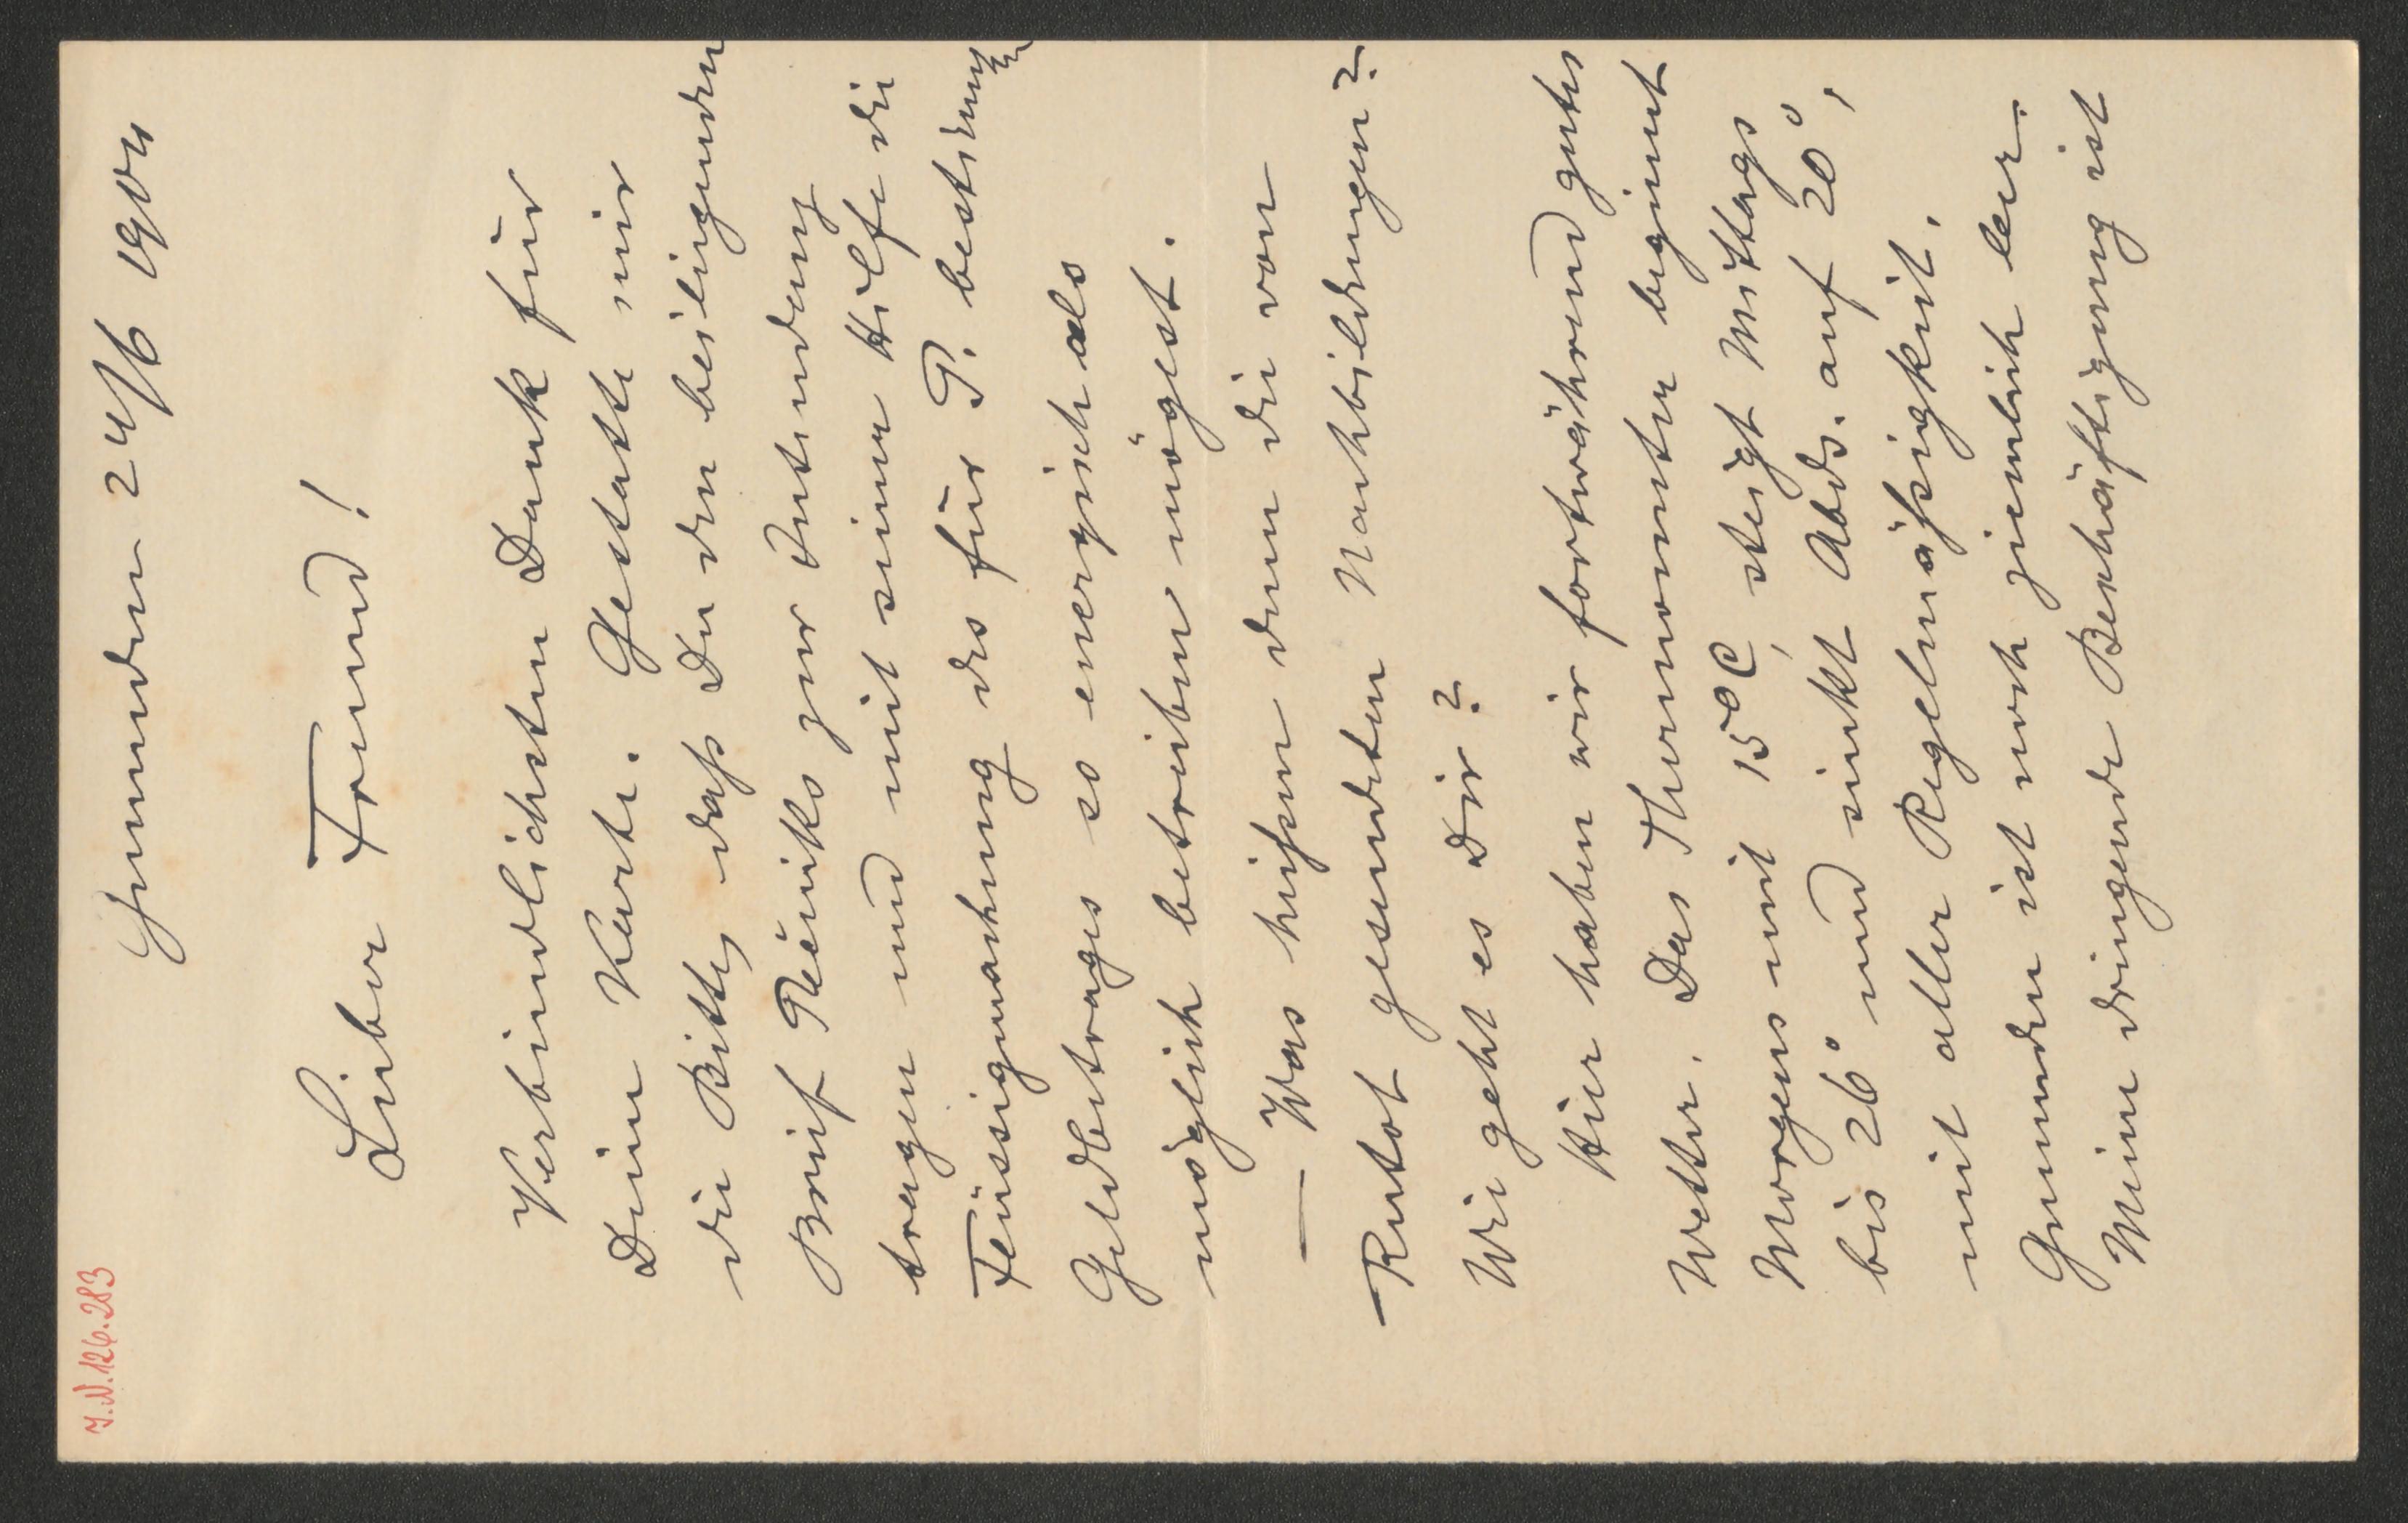 I.N. 126.283
Gmunden 24/6 1904
Lieber Freund!
Verbindlichsten Dank für
Deine Karte. Gestatte mir
die Bitte, dass Du den beiligenden
Brief zur Intendenz
tragen und mit seiner Hilfe die
Flüssigmachung des für P. bestimmten
Geldbetrages so energisch als
möglich betreiben mögest.
— Was heissen denn die von
Rutot gesendeten Nachbildungen?
Wie geht es Dir?
Hier haben wir fortwährend gutes
Wetter. Das Thermometer beginnt
Morgens mit 15°C, steigt Mittags
bis 26° und sinkt Abds. auf 20°,
mit aller Regelmässigkeit.
Gmunden ist noch ziemlich leer.
Meine dringende Beschäftigung ist